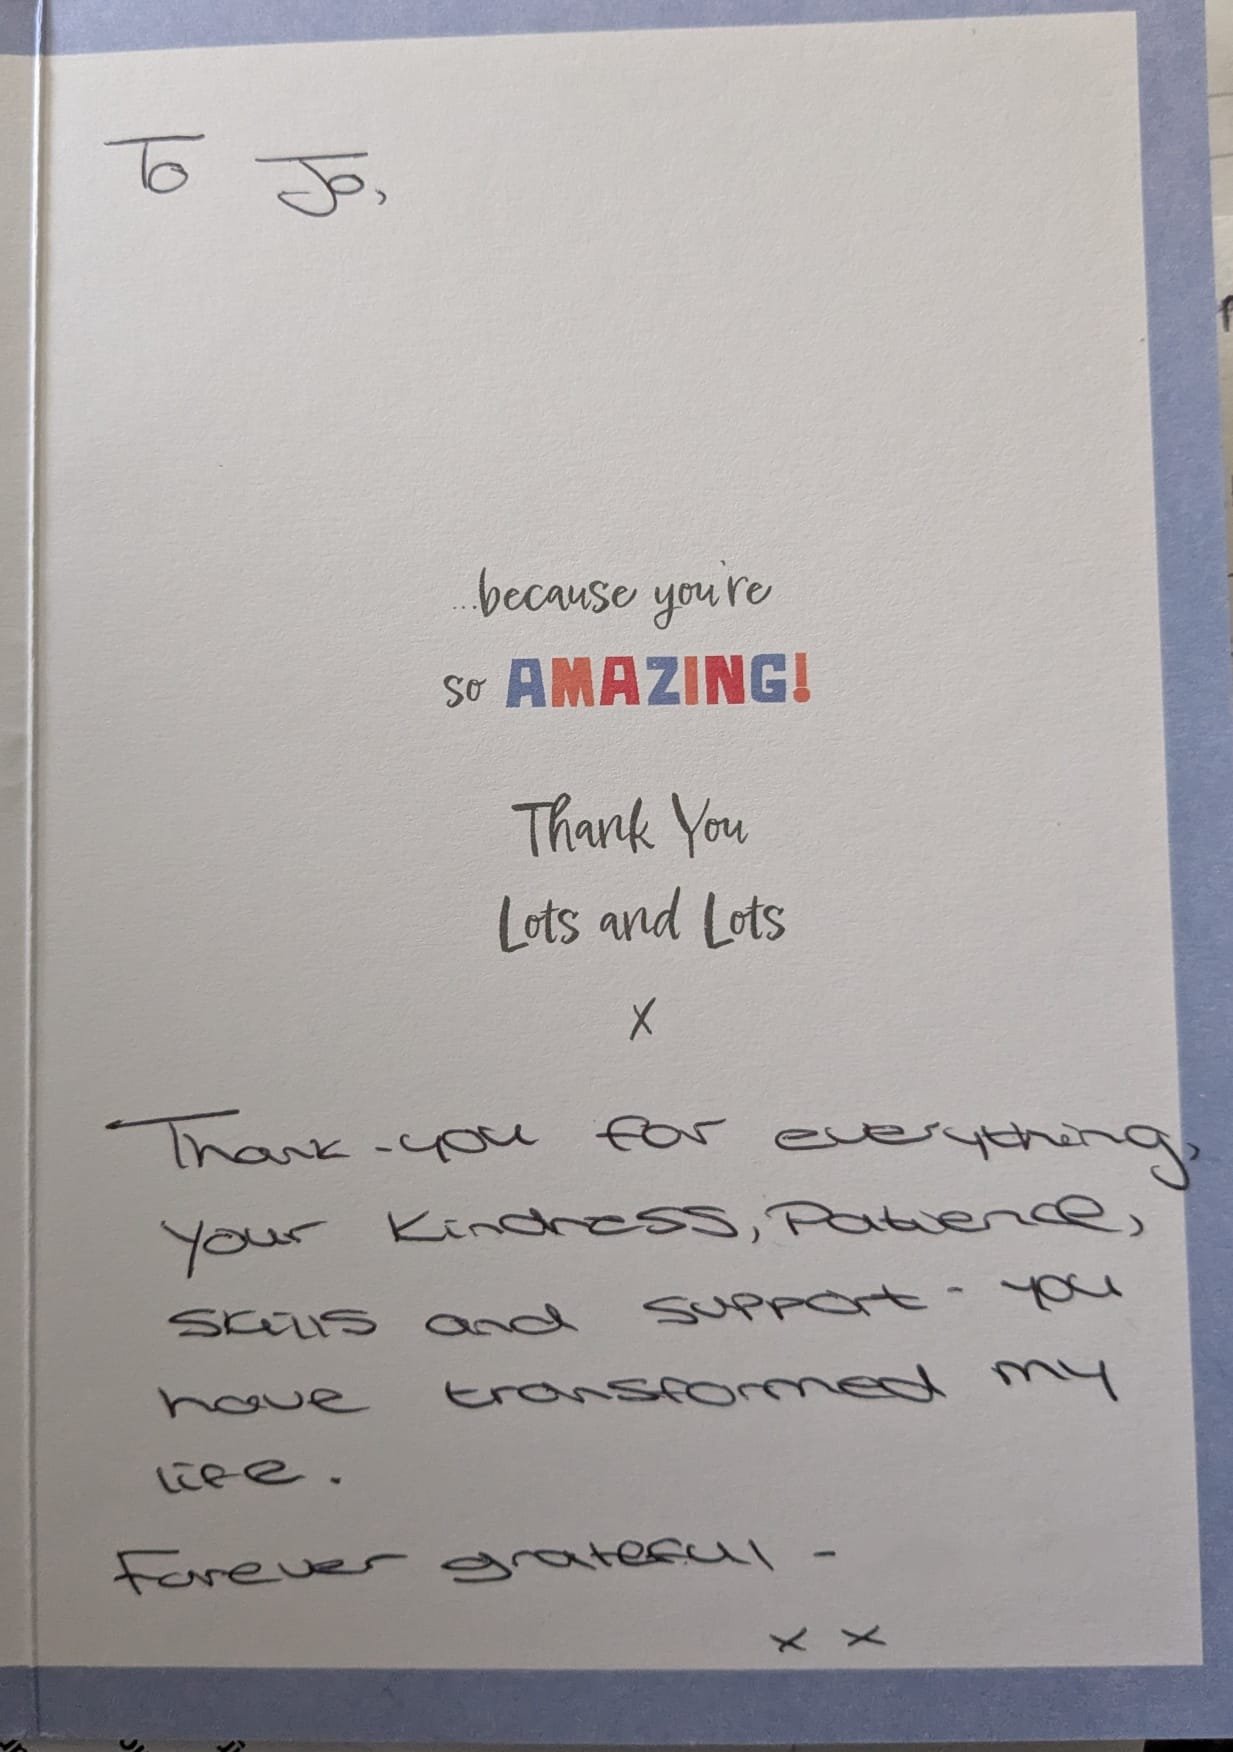 To Jo,
...because you're
so AMAZING!
Thank You
Lots and Lots
X
Thank-you for everything,
your kindness, Patience,
skills and support - you
have transformed my
life.
Forever grateful -
x x